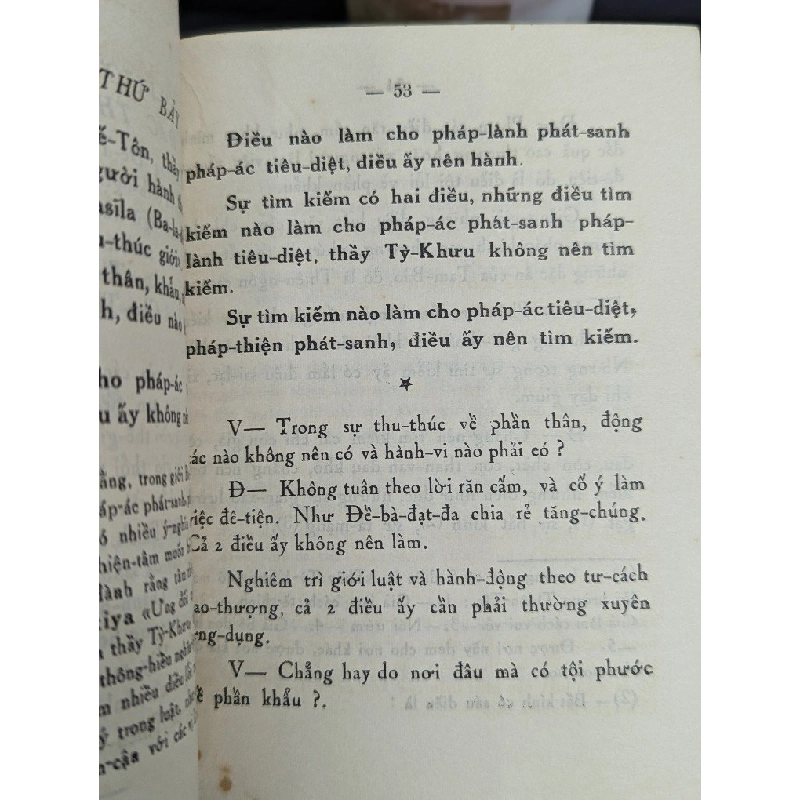 THỨ BẢY
ế-Tôn, thầy
gười hành
asīla (Ba-la
u-thúc giới
thân, khẩu
h, điều nào
ho pháp-ác
u ấy không
ằng, trong giới
áp-ác phát-sanh
ó nhiều ý-nghĩa
hiện-tâm
lành rằng
iya «Ưng
thầy Tỳ-Khưu
thông-hiểu
m nhiều điều
ý trong luật
n-cậu với các
— 53 —
Điều nào làm cho pháp-lành phát-sanh
pháp-ác tiêu-diệt, điều ấy nên hành.
Sự tìm kiếm có hai điều, những điều tìm
kiếm nào làm cho pháp-ác phát-sanh pháp-
lành tiêu-diệt, thầy Tỳ-Khưu không nên tìm
kiếm.
Sự tìm kiếm nào làm cho pháp-ác tiêu-diệt,
pháp-thiện phát-sanh, điều ấy nên tìm kiếm.
V— Trong sự thu-thúc về phần thân, động
ác nào không nên có và hành-vi nào phải có ?
Đ— Không tuân theo lời răn cấm, và cố ý làm
việc đê-tiện. Như Đề-bà-đạt-đa chia rẽ tăng-chúng.
Cả 2 điều ấy không nên làm.
Nghiêm trì giới luật và hành-động theo tư-cách
ao-thượng, cả 2 điều ấy cần phải thường xuyên
ng-dụng.
V— Chẳng hay do nơi đâu mà có tội phước
ề phần khẩu ?.